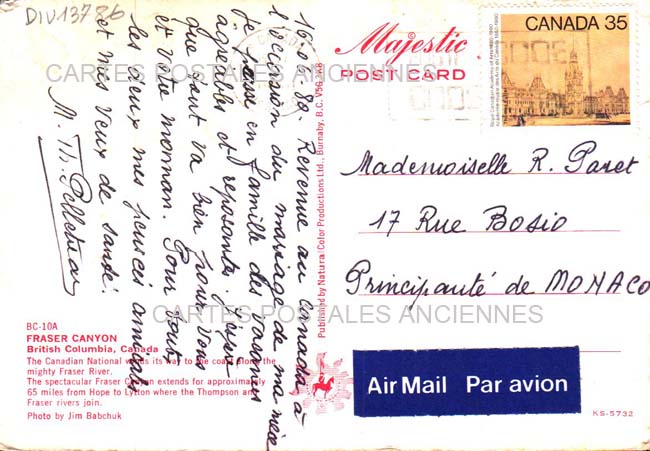 DIV13786
16.06.80. Revenue au Canada à
l'occasion du mariage de ma nièce
je passe en famille des vacances
agréables et reposantes. J'espère
que tout va bien pour vous
et votre maman. Pour toutes
les deux mes pensées amicales
et mes vœux de santé.
M. Th. Pelletier
BC-10A
FRASER CANYON
British Columbia, Canada
The Canadian National winds its way to the coast along the
mighty Fraser River.
The spectacular Fraser Canyon extends for approximately
65 miles from Hope to Lytton where the Thompson and
Fraser rivers join.
Photo by Jim Babchuk
Published by Natural Color Productions Ltd., Burnaby, B.C. V5G
Majestic
POST CARD
CANADA 35
Royal Canadian Academy of Arts 1880-1980
Académie royale des arts du Canada 1880-1980
Mademoiselle R. Paret
17 Rue Bosio
Principauté de MONACO
Air Mail Par avion
KS-5732
CARTES POSTALES ANCIENNES
CARTES POSTALES ANCIENNES